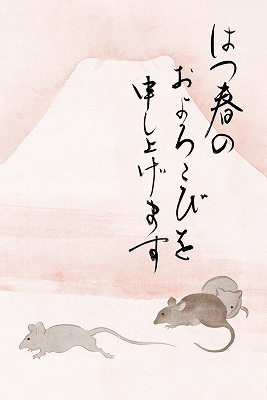 はつ春の
およろこびを
申し上げます